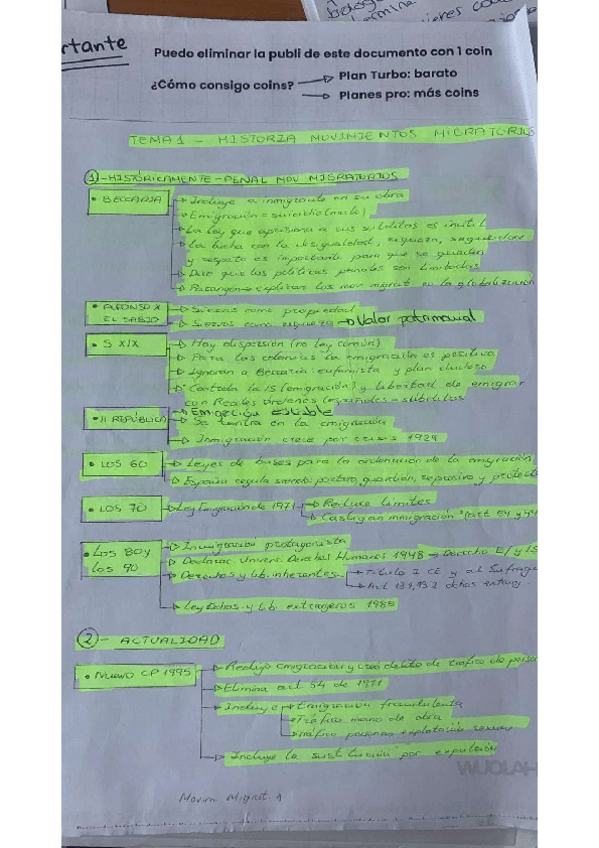 biología
termina
ieres
rtante
Puedo eliminar la publi de este documento con 1 coin
¿Cómo consigo coins?
Plan Turbo: barato
Planes pro: más coins
TEMA 1 - HISTORIA MOVIMIENTOS MIGRATORIOS
1 - HISTÓRICAMENTE - PENAL MOV MIGRATORIOS
• BECCARIA
Incluye a inmigrante en su obra
Emigración = suicidio (nulo)
La ley que aprisiona a sus súbditos es inútil
La lucha con la desigualdad, riqueza, seguridad
y respeto es importante para que se queden
Dice que las políticas penales son limitadas
explican los mov migrat en la globalización
• ALFONSO X
EL SABIO
Siervos como propiedad
Siervos como riqueza → Valor patrimonial
• S XIX
Hay dispersión (no ley común)
Para las colonias la emigración es positiva
Ignoran a Beccaria: eufemista y plan
Controla la IS (emigración) y libertad de emigrar
con Reales Órdenes (españoles = súbditos
• II REPÚBLICA
Emigración estable
Se centra en la emigración
Inmigración crece por crisis 1929
• LOS 60
Leyes de bases para la ordenación de la emigración
España regula siendo: portero, guardián, represivo y protect
• LOS 70
Ley Emigración de 1971
Reduce límites
Castigan inmigración
• Los 80 y
los 90
Inmigración protagonista
Declarac. Univers. Derechos Humanos 1948 → Derecho E/ y IS
Derechos y lib. inherentes
Título I CE y al Sufrag
Art 13
Ley Dchos. y Lib. extranjeros 1985
2 - ACTUALIDAD
• NUEVO CP 1995
Redujo emigración y creó delito de tráfico de person
Elimina art 54 de 1971
Incluye
Emigración fraudulenta
Tráfico mano de obra
Tráfico personas explotación sexual
Incluye la sustitución por expulsión
WUOLAH
Movim Migrat. 1